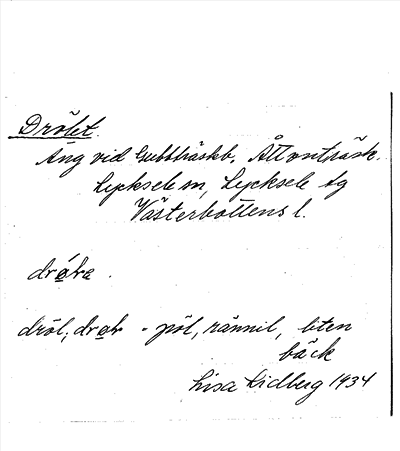 Drölet.
Äng vid Gubbträskb. Åttonträsk.
Lycksele sn, Lycksele tg
Västerbottens l.
dröl, - pöl, rännil, liten
bäck
Lisa Lidberg 1934